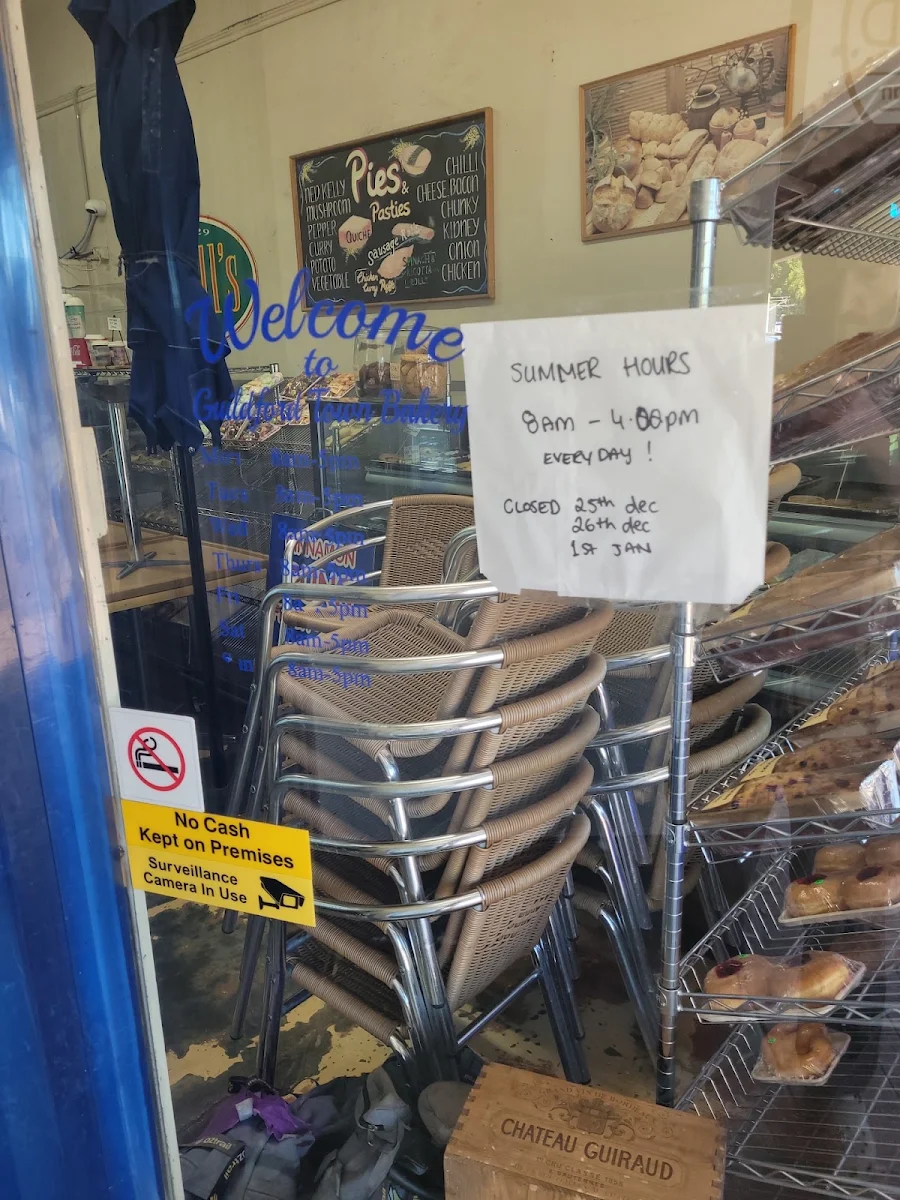 Pies &
Pasties
NED KELLY
MUSHROOM
PEPPER
CURRY
POTATO
VEGETABLE
QUICHE
Sausage
Chicken
Curry
CHILLI
CHEESE BACON
CHUNKY
KIDNEY
ONION
CHICKEN
ll's
Welcome
to
Guildford Town Bakery
Tues 8am-5pm
Thurs 8am-5pm
5pm
Sat 8am-5pm
8am-5pm
SUMMER HOURS
8AM - 4.00pm
EVERYDAY !
CLOSED 25th dec
26th dec
1st JAN
No Cash
Kept on Premises
Surveillance
Camera In Use
CHATEAU GUIRAUD